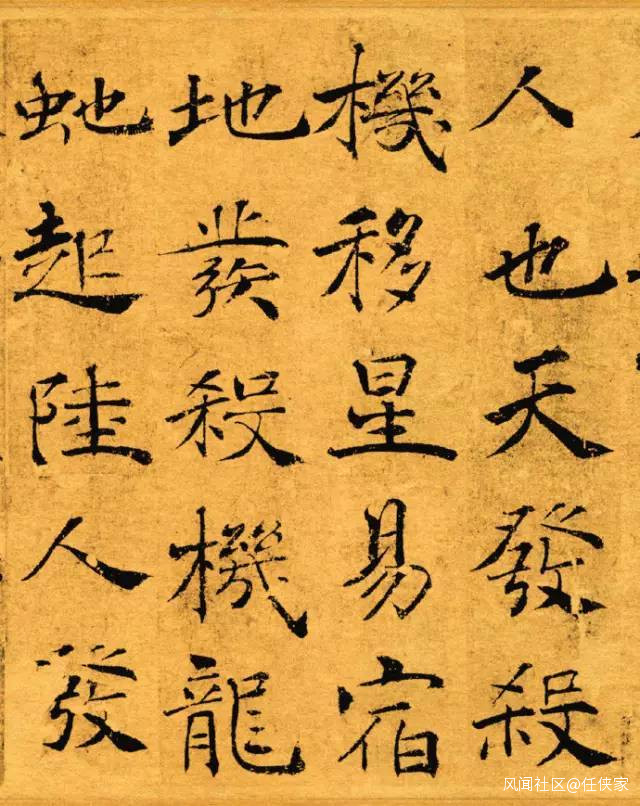 人也天發殺
機移星易宿
地發殺機龍
虵起陸人發
风闻社区@任侠家